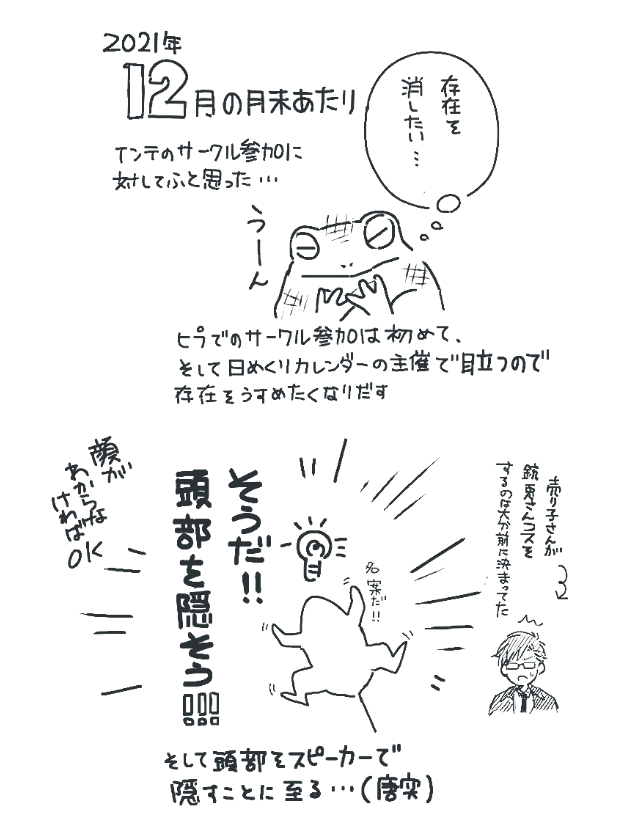 2021年
12月の月末あたり
インテのサークル参加に
対してふと思った…
存在を
消したい…
うーん
ヒプでのサークル参加は初めて、
そして日めくりカレンダーの主催で目立つので
存在をうすめたくなりだす
売り子さんが
銃兎さんコスを
するのは大分前に決まってた
名案だ!!
そうだ!!
頭部を隠そう!!!
顔が
わからな
ければ
OK
そして頭部をスピーカーで
隠すことに至る…(唐突)